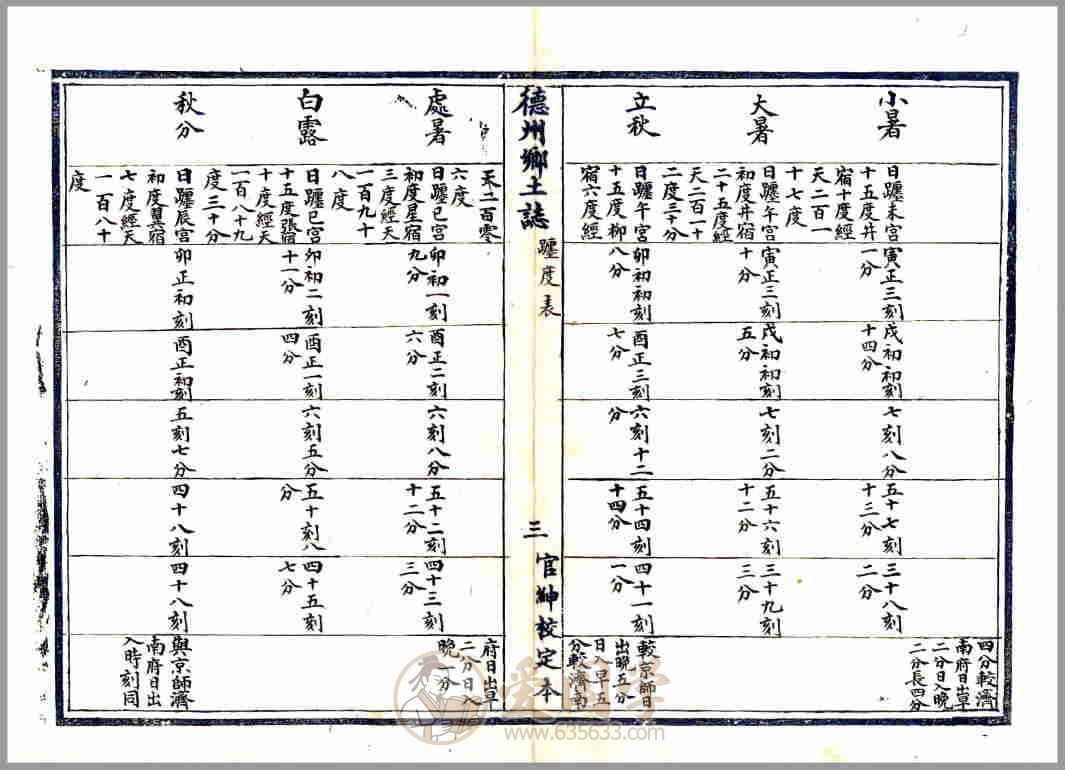 小暑
日躔未宮
十五度井
宿十度經
天二百一
十七度
寅正三刻
一分
戌初初刻
十四分
七刻八分
五十七刻
十三分
三十八刻
二分
四分較濟
南府日出早
二分日入晚
二分長四分
大暑
日躔午宮
初度井宿
二十五度經
天二百一十
二度三十分
寅正三刻
十分
戌初初刻
五分
七刻二分
五十六刻
十二分
三十九刻
三分
立秋
日躔午宮
十五度柳
宿六度經
卯初初刻
八分
酉正三刻
七分
六刻十二
分
五十四刻
十四分
四十一刻
一分
較京師日
出晚五分
日入早五
分較濟南
德州鄉土誌
躔度表
三
官紳校定本
天二百零
六度
處暑
日躔巳宮
初度星宿
三度經天
一百九十
八度
卯初一刻
九分
酉正二刻
六分
六刻八分
五十二刻
十二分
四十三刻
三分
府日出早
二分日入
晚一分
白露
日躔巳宮
十五度張宿
十度經天
一百八十九
度三十分
卯初二刻
十一分
酉正一刻
四分
六刻五分
五十刻八
分
四十五刻
七分
秋分
日躔辰宮
初度翼宿
七度經天
一百八十
度
卯正初刻
酉正初刻
五刻七分
四十八刻
四十八刻
與京師濟
南府日出
入時刻同
www.635633.com